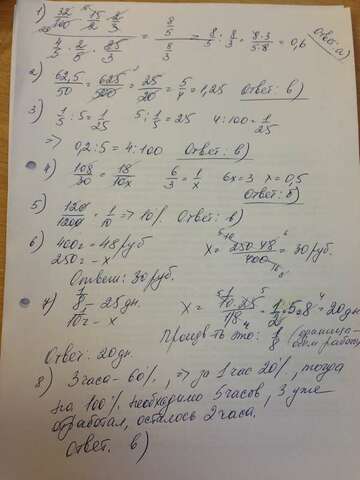 1) 32/100 · 15/2 · 2/3
4/3 · 2/5 · 25/3 = 8/5 / 8/3 = 8/5 : 8/3 = 8·3/5·8 = 0,6 Ответ: а)
2) 62,5/50 = 625/500 = 25/20 = 5/4 = 1,25 Ответ: в)
3) 1/5 : 5 = 1/25 5 : 1/5 = 25 4 : 100 = 1/25
=> 0,2 : 5 = 4 : 100 Ответ: в)
4) 108/30 = 18/10x 6/3 = 1/x 6x = 3 x = 0,5
Ответ: б)
5) 120/1200 = 1/10 => 10% Ответ: в)
6) 400г = 48/руб x = 250·48/400 = 30/руб.
250г - x
Ответ: 30 руб.
1/8 - 25 дн.
1/10 - x
Ответ: 20 дн
8) 3 часа - 60%, => за 1 час 20%, тогда
на 100% необходимо 5 часов, 3 уже
отработал, осталось 2 часа.
Ответ. в)